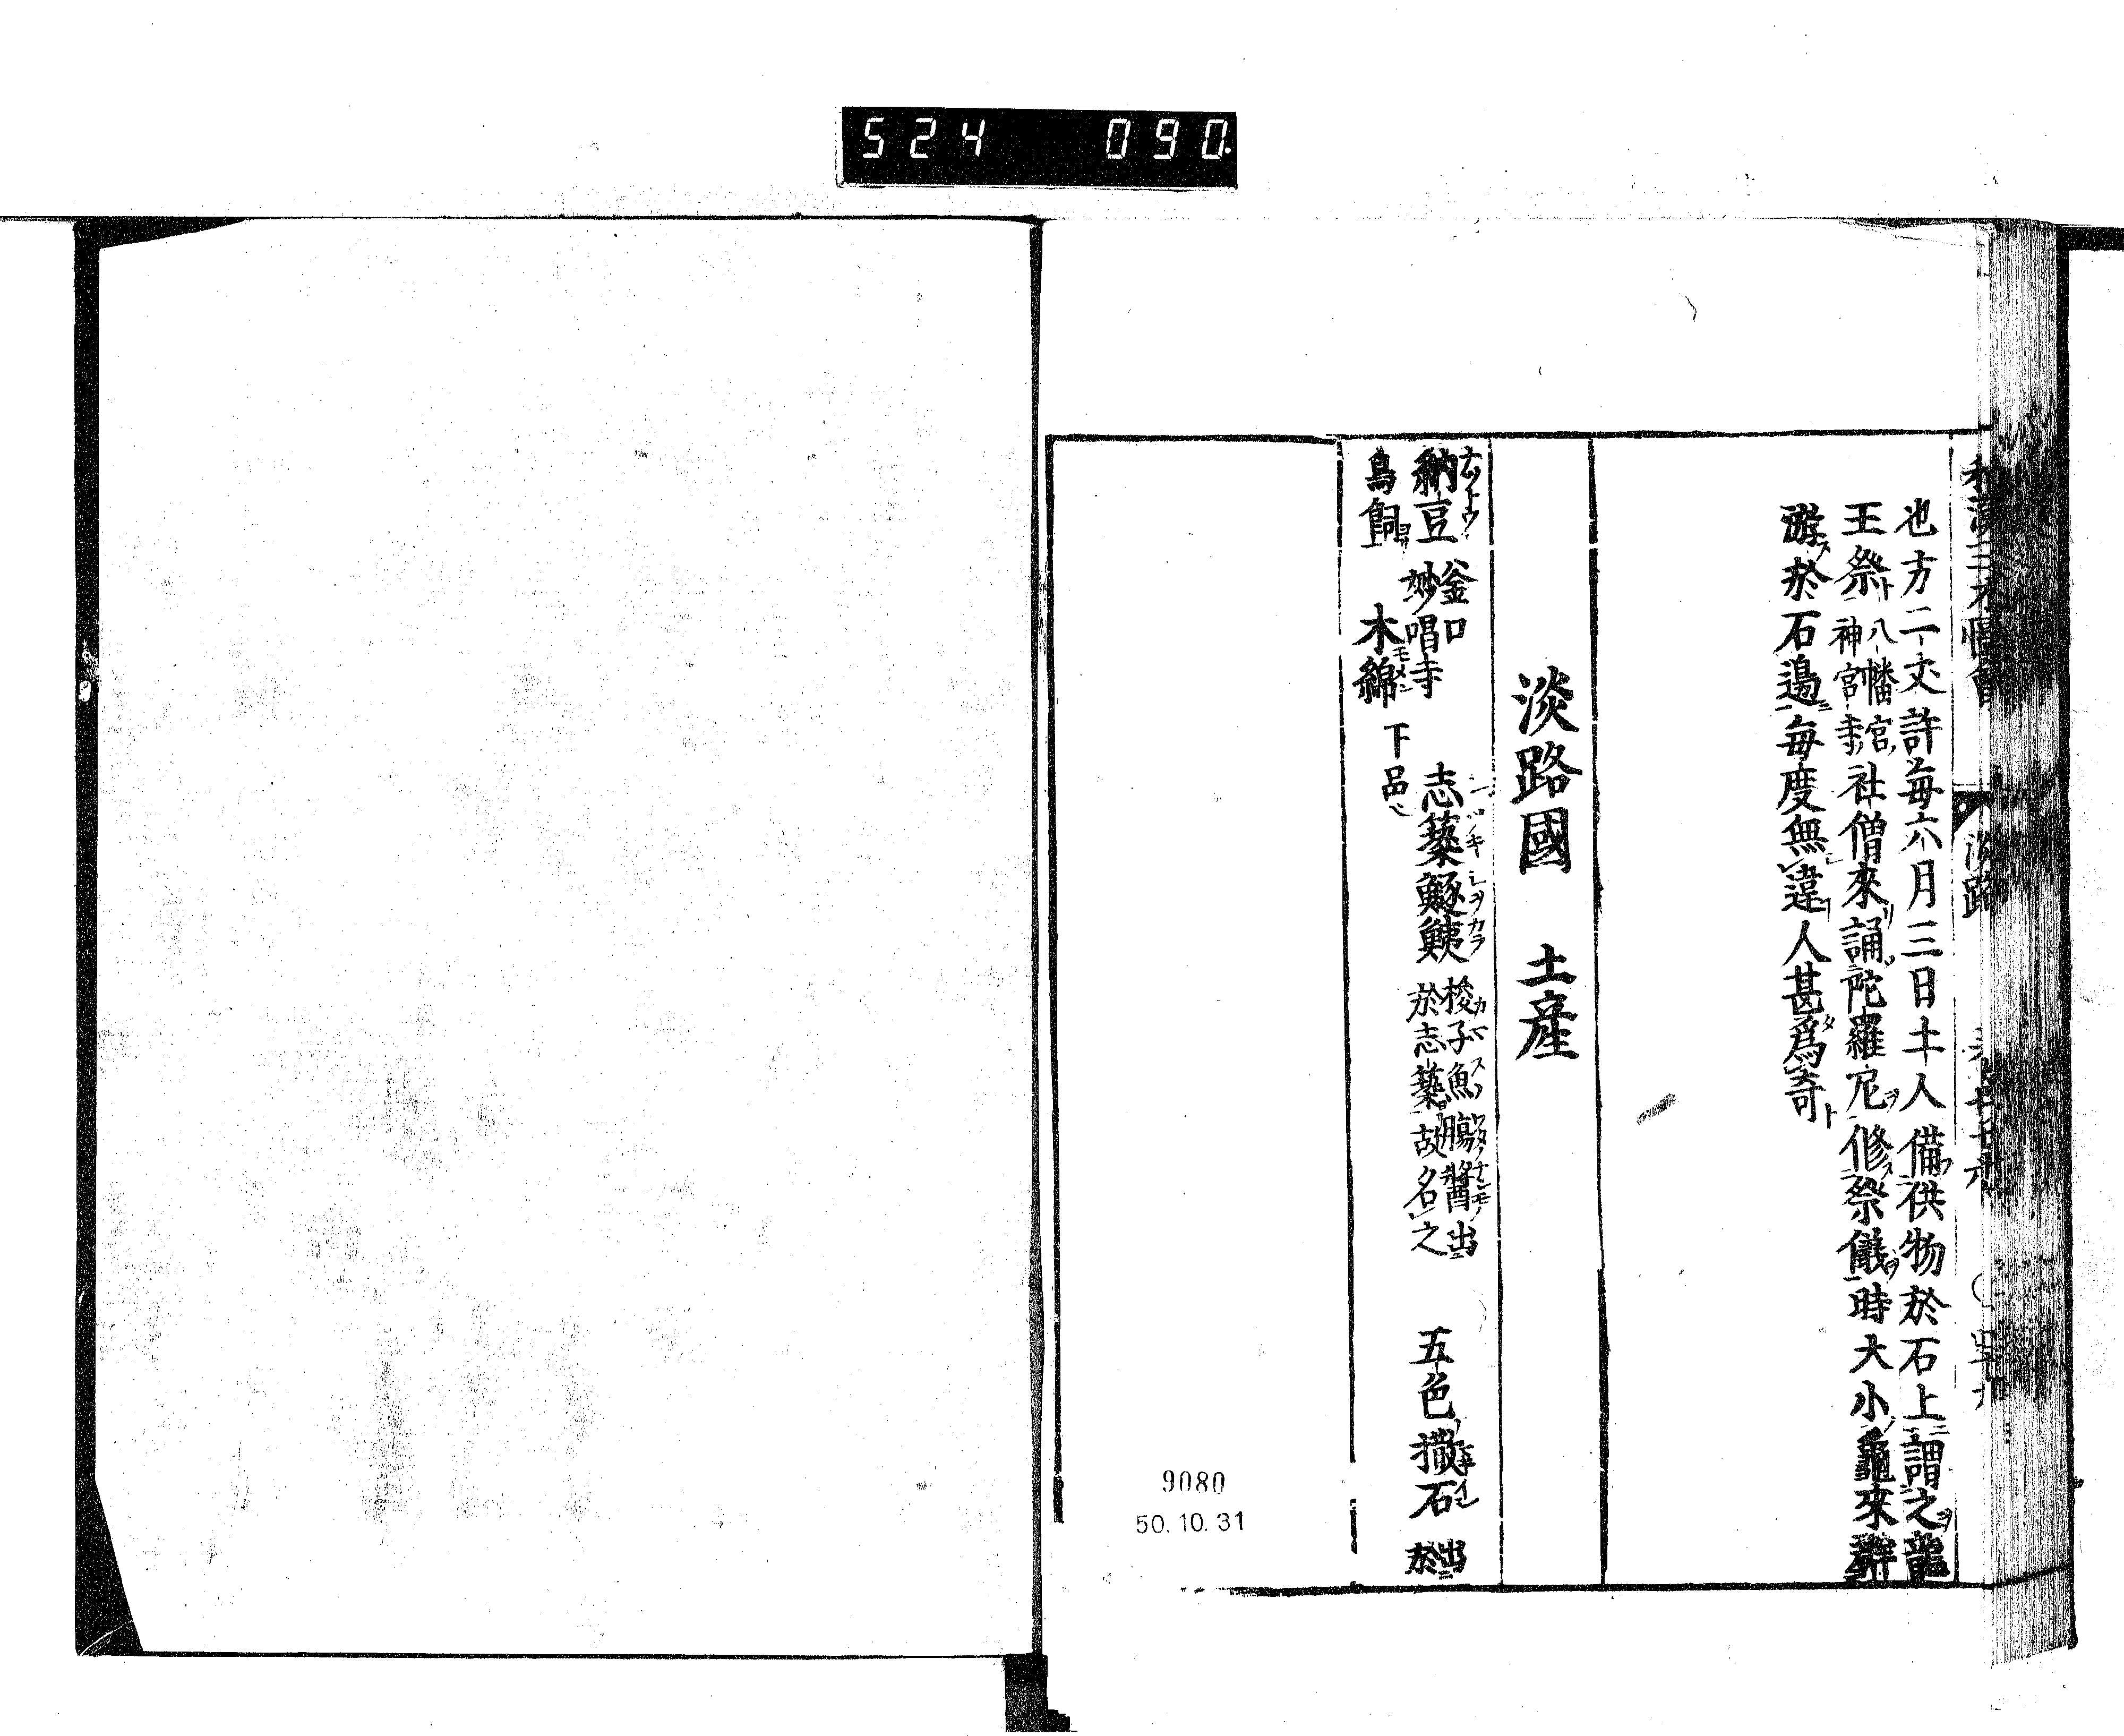 524 090
和漢三才圖會 淡路
也方二丈許每六月三日土人備供物於石上謂之龍
王祭八幡宮神宮寺社僧來誦陀羅尼修祭儀時大小龜來群
游於石邊每度無違人甚爲奇
淡路國 土産
納豆 釜口妙唱寺 志築鱁鮧 梭子魚腸醬出於志築故名之 五色撒石 出於
鳥飼 木綿 下品
9080
50.10.31